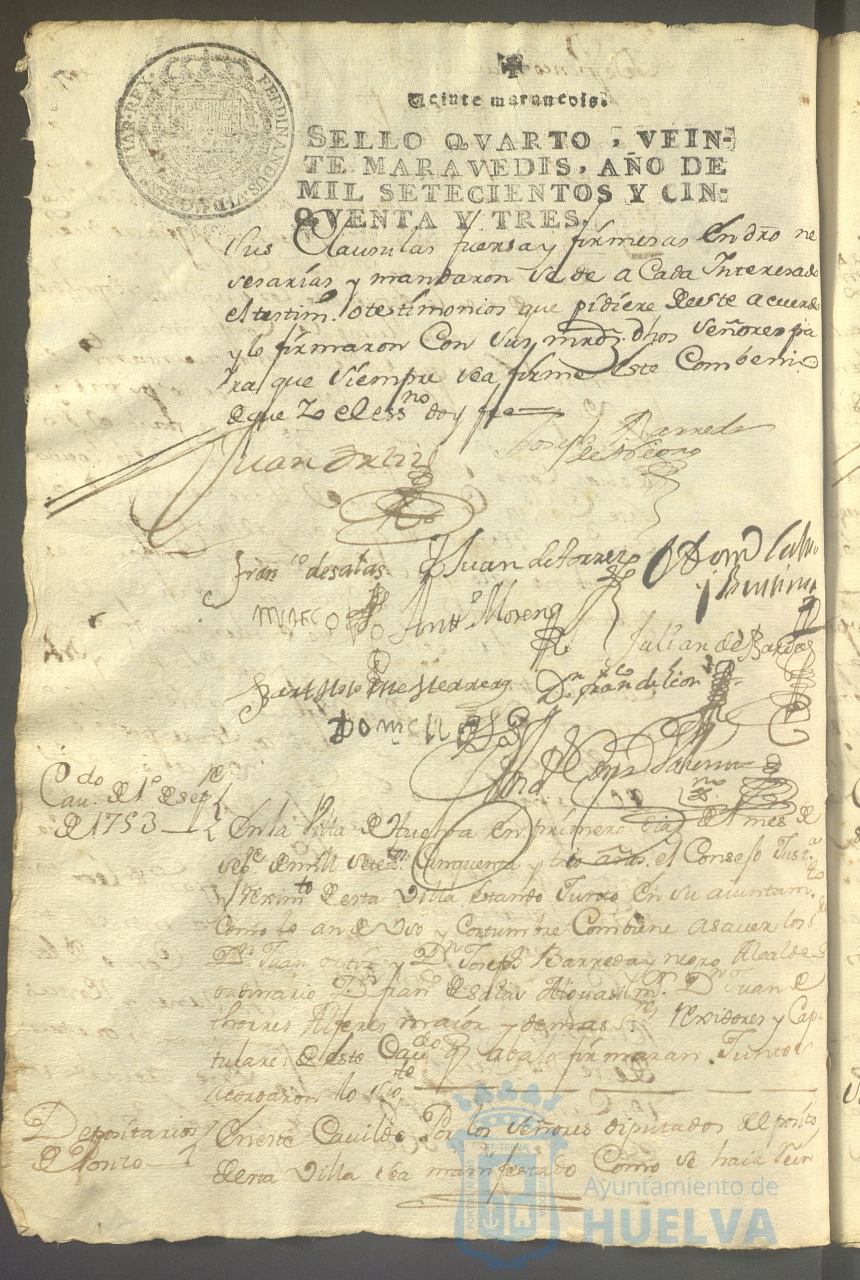 FERDINANDUS VI D G HISP ET IND AR REX
Veinte maravedis.
SELLO QVARTO, VEIN-
TE MARAVEDIS, AÑO DE
MIL SETECIENTOS Y CIN-
QVENTA Y TRES.
sus Clausulas fuersa y firmesas en dro ne
sesarias y mandaron se de a Cada Interesado
el testim. o testimonios que pidiere de este acuerdo
y lo firmaron Con sus mrds. dhos Señores pa
ra que siempre sea firme este Combenio
de que Yo el essno doy fee
Juan Ortiz Joseph Barreda
de Negro
Franco de salas Juan de torres
Antto Moreno Julian de
Bartholome Herrera Dn franco de leon
Cavdo de 1º de sepre
de 1753
En la Villa de Huelva en primero dia del mes de
sepre de mill setezs. Cinquenta y tres años. el Consejo Justa
y Reximto de esta Villa estando Junto en su aiuntamto
Como lo an de uso y Costumbre Combiene a saver los Ses
Dn Juan ortiz y Dn Joseph Barreda y negro Alcaldes
ordinarios Dn franco de salas Alguasil mr. Dn Juan de
thorres Alferes maior y demas Ses Rexidores y Capi
tulares de este Cavdo q abajo firmaran Juntos
acordaron lo sigte
Depositarios
del Ponto
En este Cavildo Por los señores diputados del posito
de esta Villa sea manifestado Como se havia
Ayuntamiento de
HUELVA